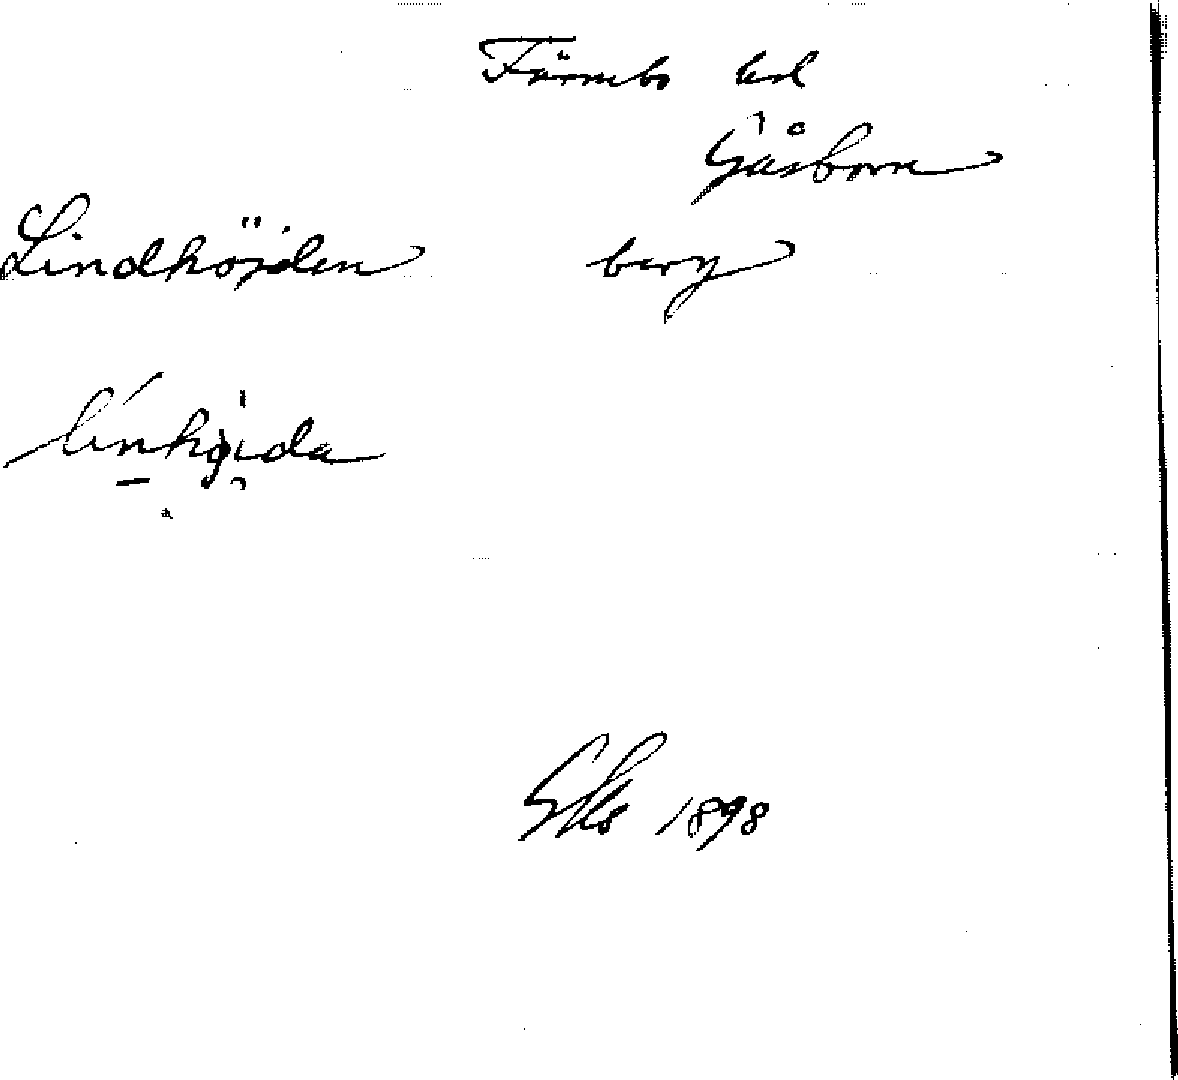 Färnebo hd
Gåsborn
Lindhöjden berg
linhöida
Gks 1898